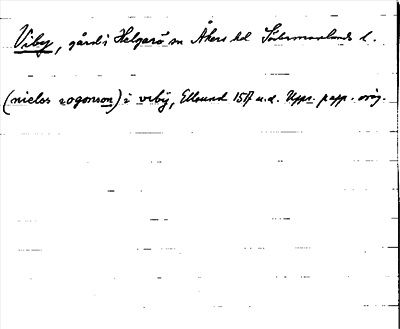 Viby, gård i Helgarö sn Åkers hd Södermanlands l.
(nielss ogonson) i viby, Ellsund 15 u.d. Upps. papp. orig.